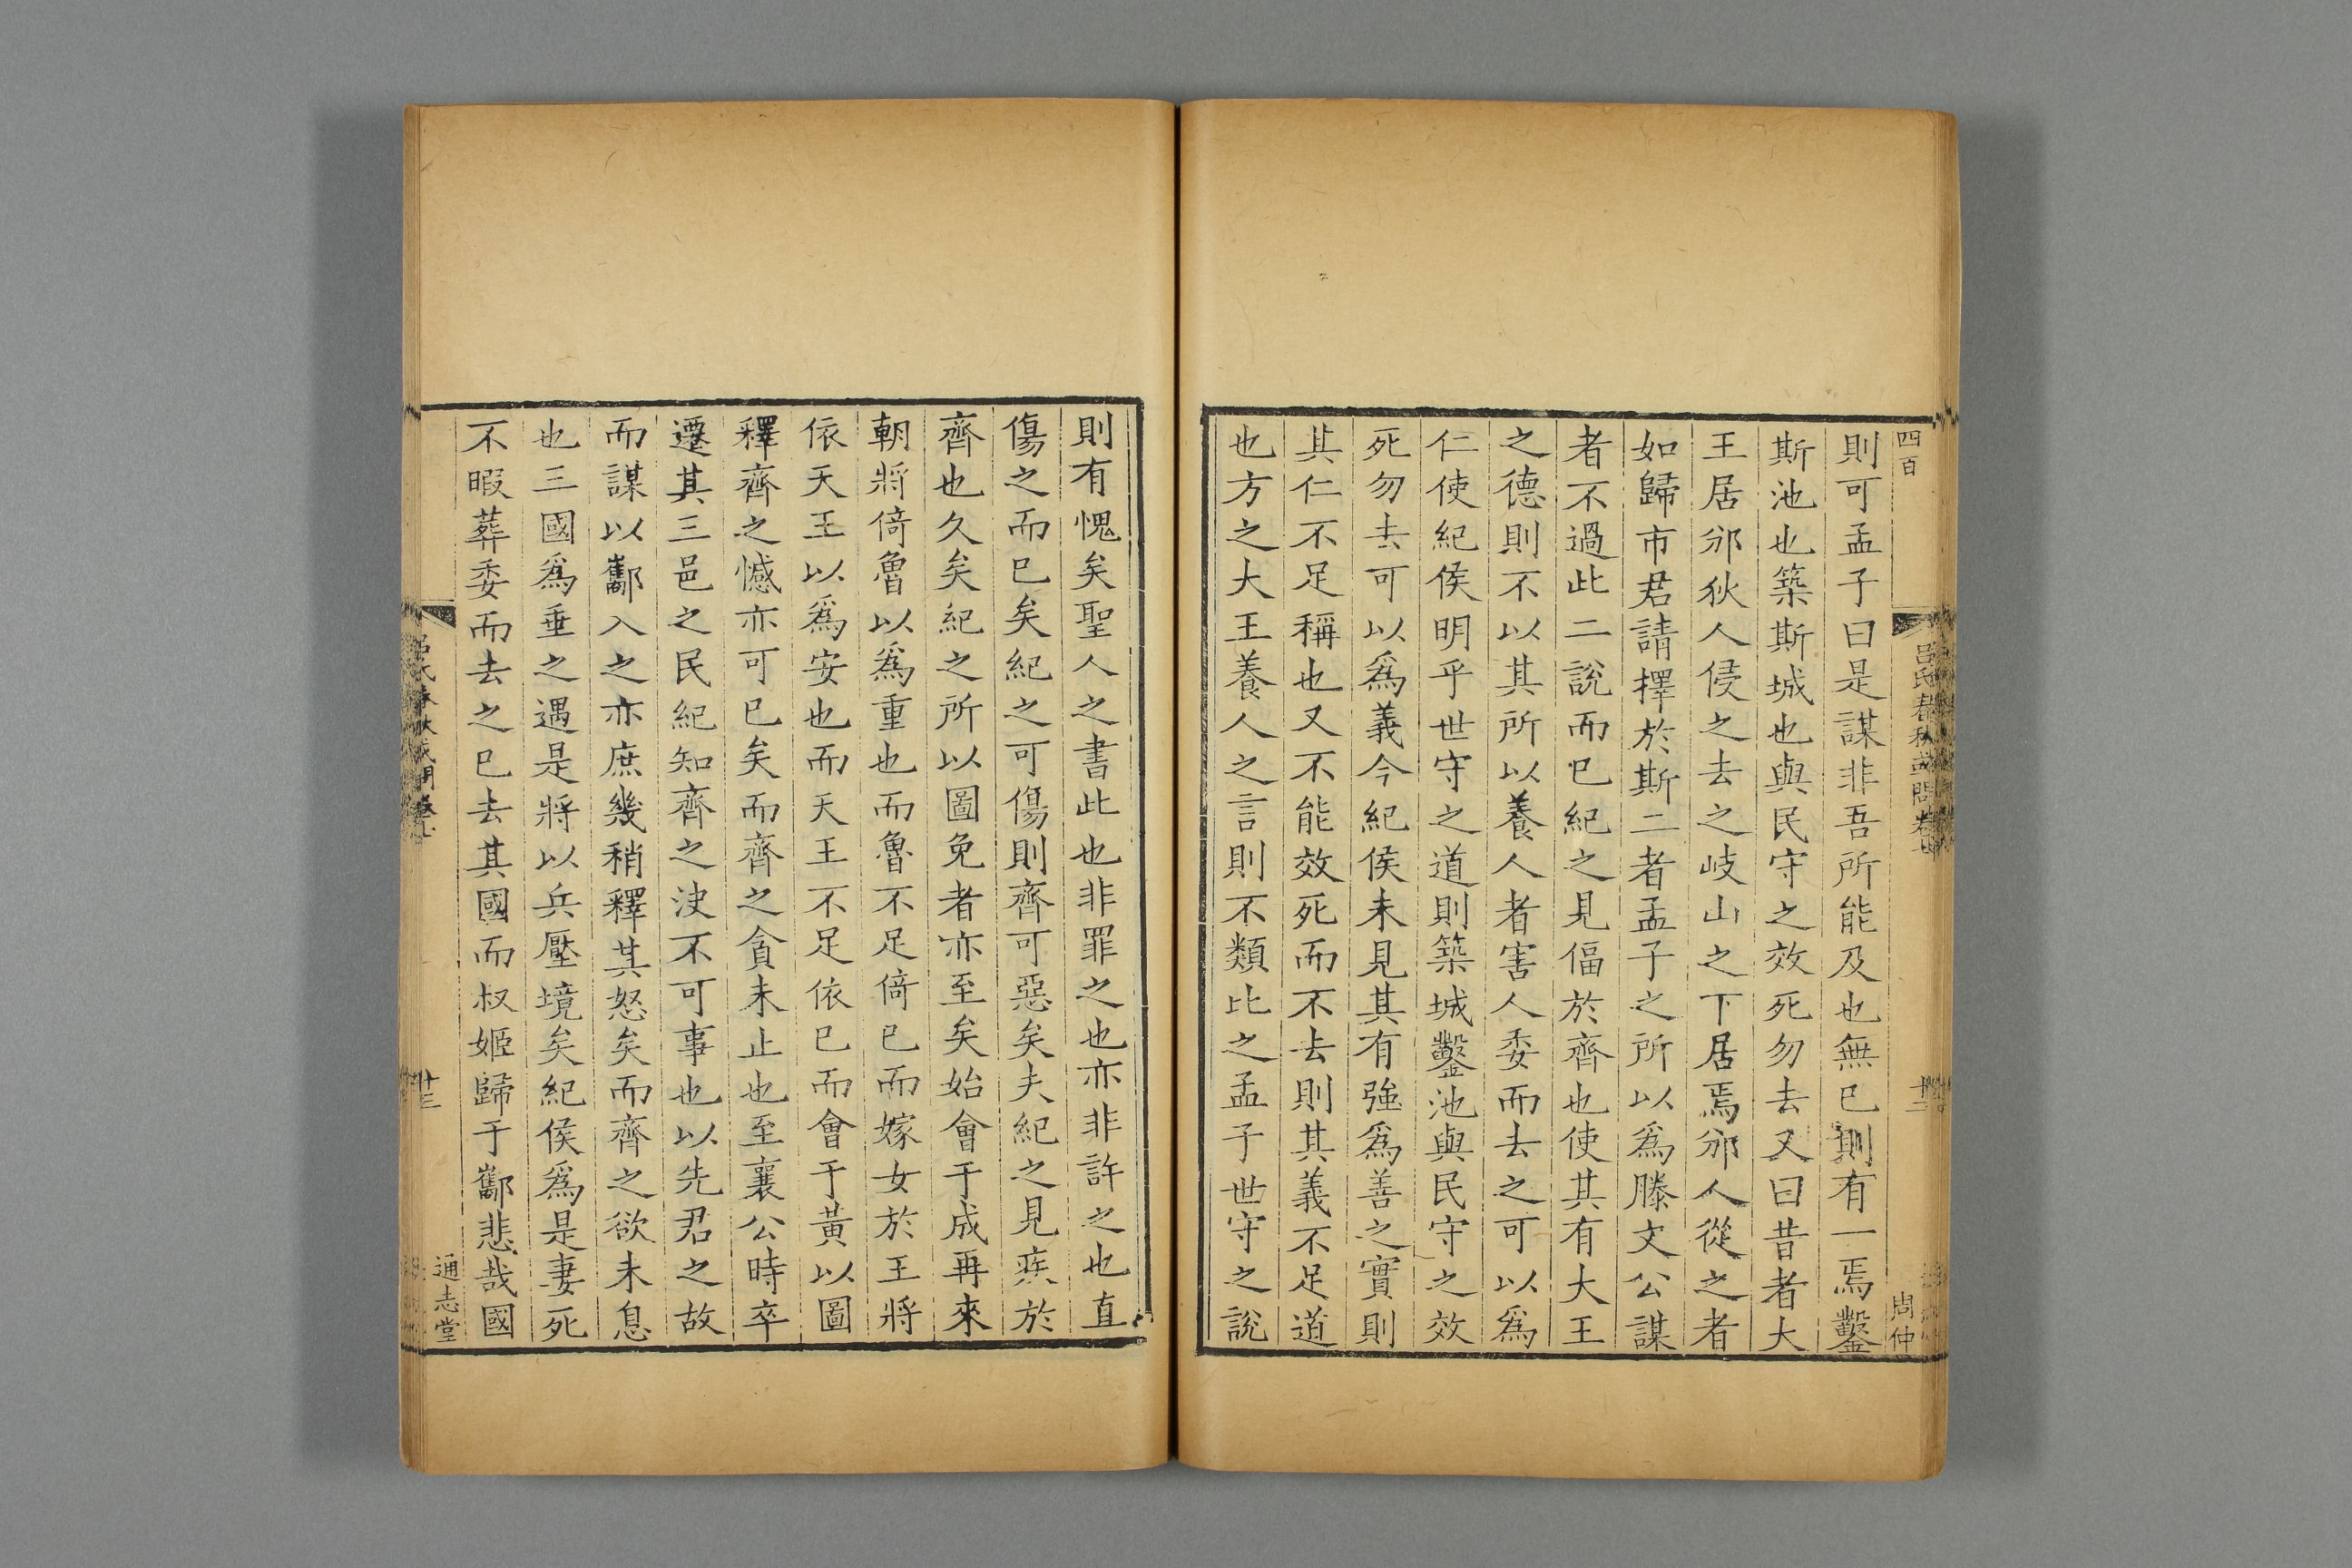 四百
呂氏春秋或問卷
周仲
則可孟子曰是謀非吾所能及也無已則有一焉鑿
斯池也築斯城也與民守之效死勿去又曰昔者大
王居邠狄人侵之去之岐山之下居焉邠人從之者
如歸市君請擇於斯二者孟子之所以爲滕文公謀
者不過此二說而已紀之見偪於齊也使其有大王
之德則不以其所以養人者害人委而去之可以爲
仁使紀侯明乎世守之道則築城鑿池與民守之效
死勿去可以爲義今紀侯未見其有強爲善之實則
其仁不足稱也又不能效死而不去則其義不足道
也方之大王養人之言則不類比之孟子世守之說
則有愧矣聖人之書此也非罪之也亦非許之也直
傷之而已矣紀之可傷則齊可惡矣夫紀之見疾於
齊也久矣紀之所以圖免者亦至矣始會于成再來
朝將倚魯以爲重也而魯不足倚已而嫁女於王將
依天王以爲安也而天王不足依已而會于黃以圖
釋齊之憾亦可已矣而齊之貪未止也至襄公時卒
遷其三邑之民紀知齊之决不可事也以先君之故
而謀以酅入之亦庶幾稍釋其怒矣而齊之欲未息
也三國爲垂之遇是將以兵壓境矣紀侯爲是妻死
不暇葬委而去之已去其國而叔姬歸于酅悲哉國
呂氏春秋或問卷
十三
通志堂